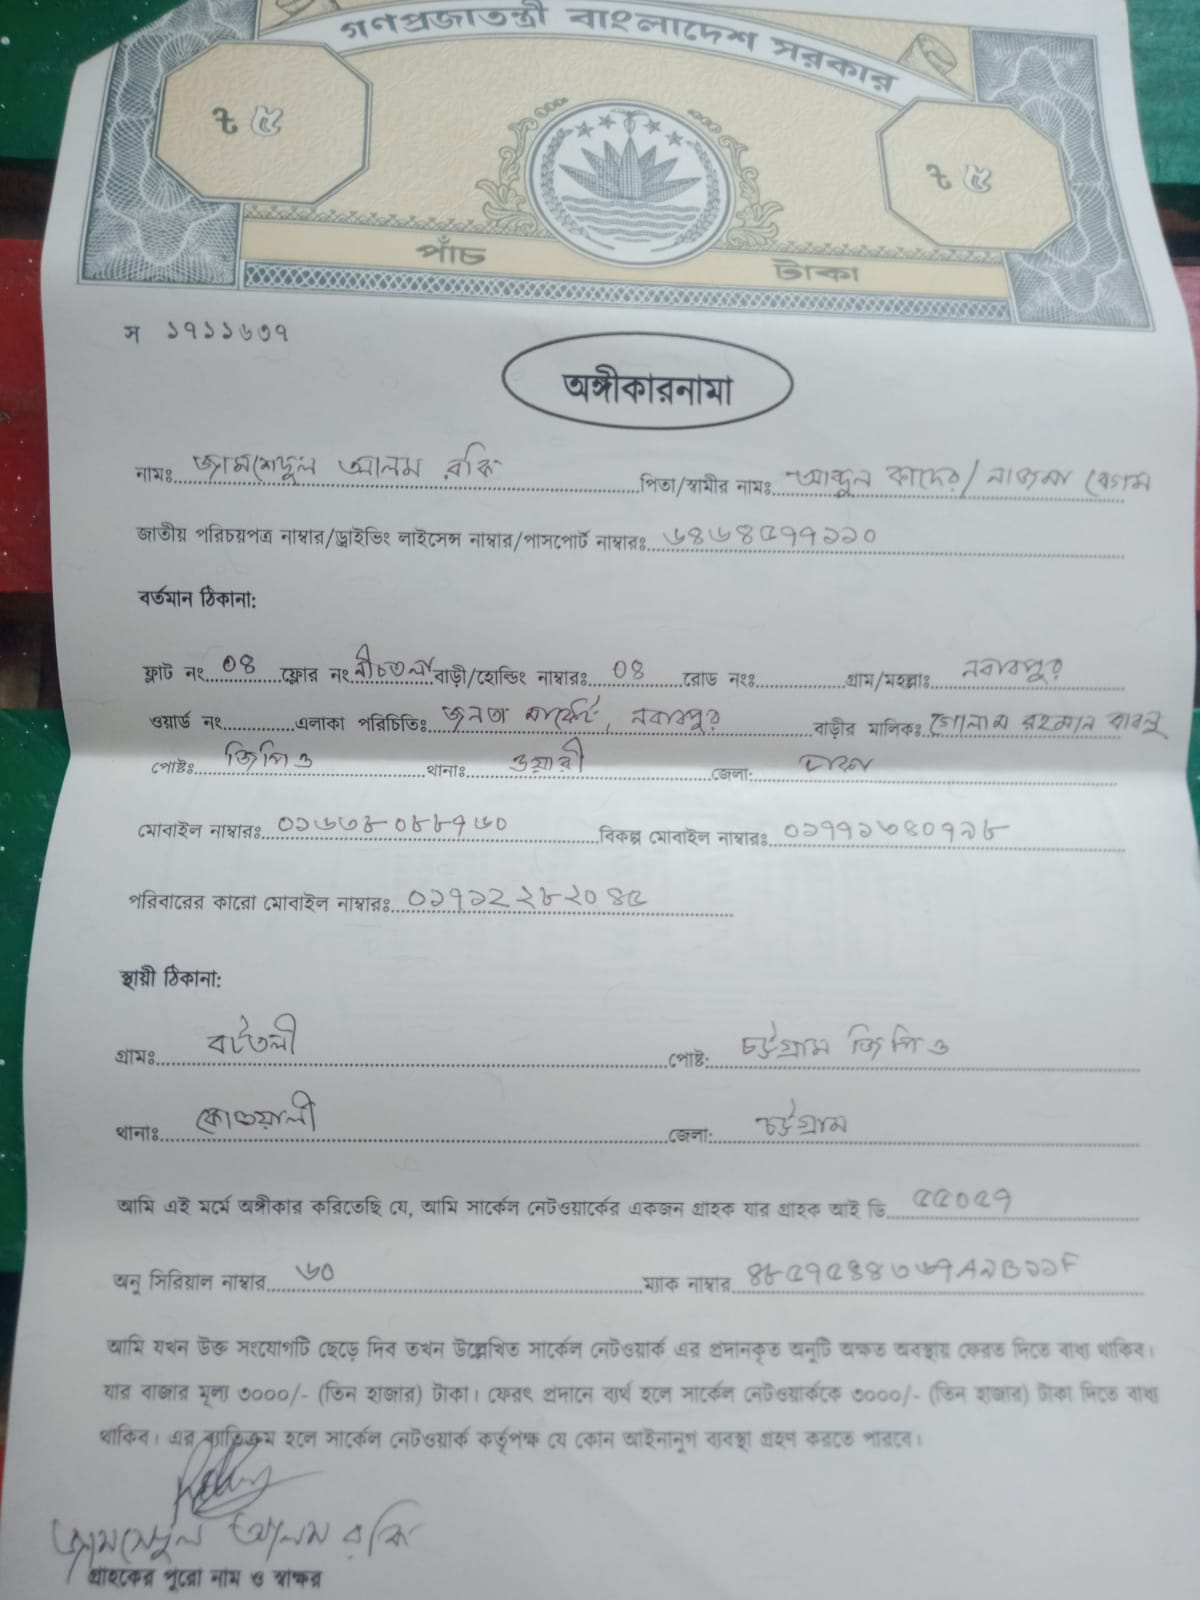 গণপ্রজাতন্ত্রী বাংলাদেশ সরকার
৳ ৫ ৳ ৫
পাঁচ টাকা
স ১৭১১৬৩৭
অঙ্গীকারনামা
নামঃ জামশেদুল আলম রকি পিতা/স্বামীর নামঃ আব্দুল কাদের/ নাজমা বেগম
জাতীয় পরিচয়পত্র নাম্বার/ড্রাইভিং লাইসেন্স নাম্বার/পাসপোর্ট নাম্বারঃ ৬৪৬৪৫৭৭১১০
বর্তমান ঠিকানা:
ফ্লাট নং ০৪ ফ্লোর নং নীচতলা বাড়ী/হোল্ডিং নাম্বারঃ ০৪ রোড নংঃ গ্রাম/মহল্লাঃ নবাবপুর
ওয়ার্ড নং এলাকা পরিচিতিঃ জনতা মার্কেট, নবাবপুর বাড়ীর মালিকঃ গোলাম রহমান বাবলু
পোষ্টঃ জিপিও থানাঃ ওয়ারী জেলা: ঢাকা
মোবাইল নাম্বারঃ ০১৬৩৮০৮৮৭৬০ বিকল্প মোবাইল নাম্বারঃ ০১৭৭১৩৪০৭৯৮
পরিবারের কারো মোবাইল নাম্বারঃ ০১৭১২২৮২০৪৫
স্থায়ী ঠিকানা:
গ্রামঃ বটতলী পোষ্ট: চট্টগ্রাম জিপিও
থানাঃ কোতয়ালী জেলা: চট্টগ্রাম
আমি এই মর্মে অঙ্গীকার করিতেছি যে, আমি সার্কেল নেটওয়ার্কের একজন গ্রাহক যার গ্রাহক আই ডি ৫৫০৫৭
অনু সিরিয়াল নাম্বার ৬০ ম্যাক নাম্বার
আমি যখন উক্ত সংযোগটি ছেড়ে দিব তখন উল্লেখিত সার্কেল নেটওয়ার্ক এর প্রদানকৃত অনুটি অক্ষত অবস্থায় ফেরত দিতে বাধ্য থাকিব।
যার বাজার মূল্য ৩০০০/- (তিন হাজার) টাকা। ফেরৎ প্রদানে ব্যর্থ হলে সার্কেল নেটওয়ার্ককে ৩০০০/- (তিন হাজার) টাকা দিতে বাধ্য
থাকিব। এর ব্যতিক্রম হলে সার্কেল নেটওয়ার্ক কর্তৃপক্ষ যে কোন আইনানুগ ব্যবস্থা গ্রহণ করতে পারবে।
জামসেদুল আলম রকি
গ্রাহকের পুরো নাম ও স্বাক্ষর